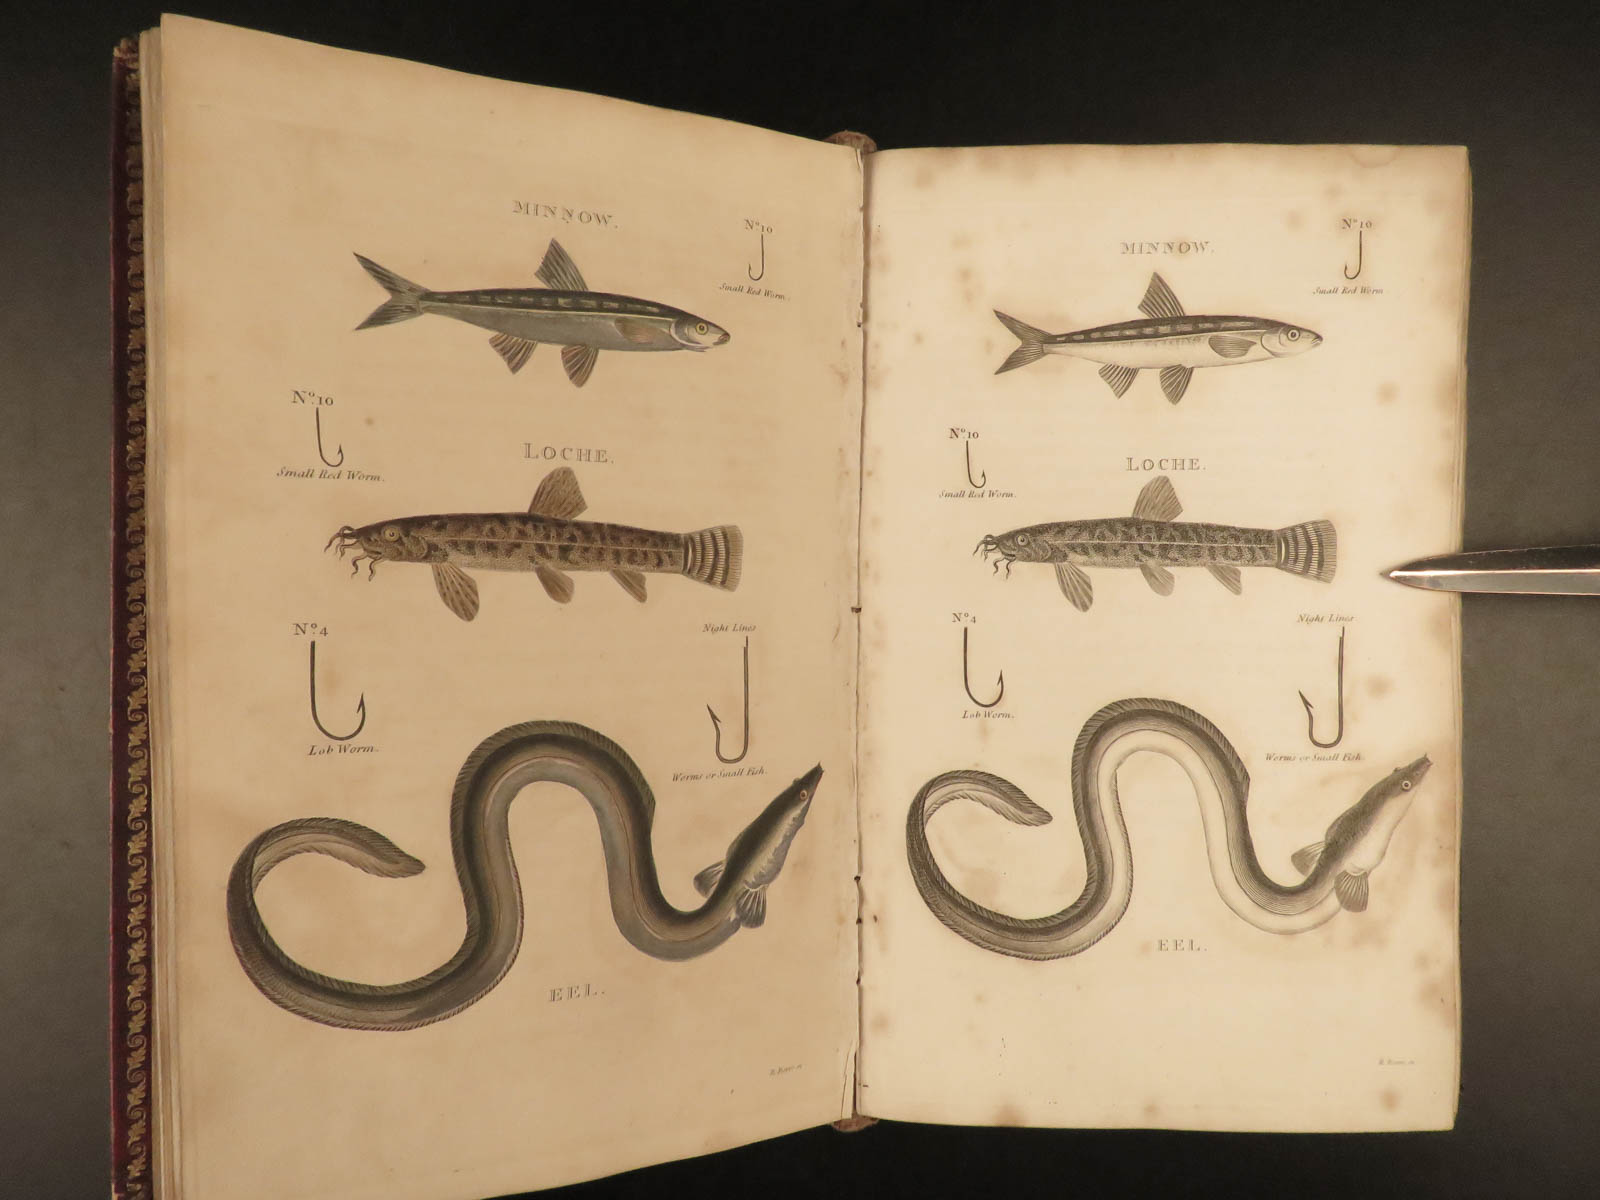 MINNOW.
Nº 10
Small Red Worm.
Nº. 10
Small Red Worm.
LOCHE.
Nº. 4
Lob Worm.
Night Lines
Worms or Small Fish.
EEL.
MINNOW.
Nº 10
Small Red Worm
Nº. 10
Small Red Worm.
LOCHE.
Nº 4
Lob Worm.
Night Lines
Worms or Small Fish.
EEL.